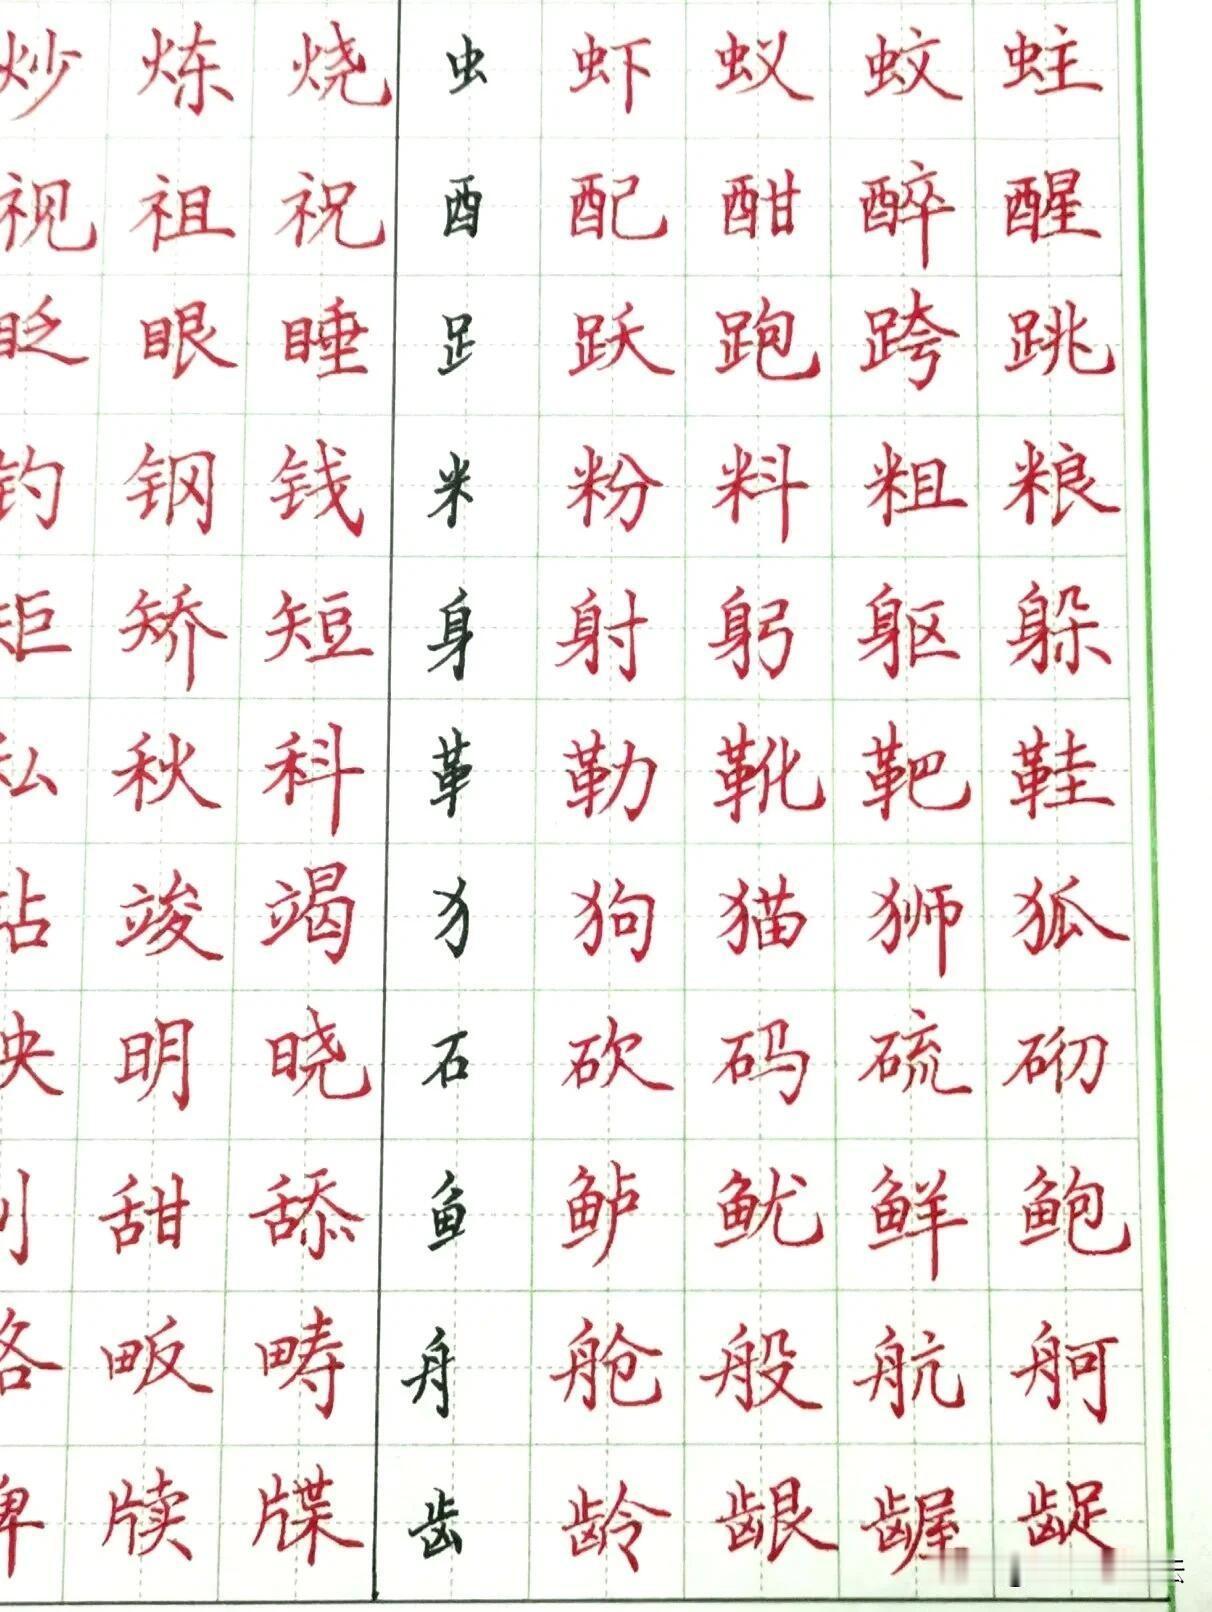 炒 炼 烧 虫 虾 蚁 蚊 蛀
视 祖 祝 酉 配 酣 醉 醒
眨 眼 睡 𧾷 跃 跑 跨 跳
钓 钢 钱 米 粉 料 粗 粮
矩 矫 短 身 射 躬 躯 躲
私 秋 科 革 勒 靴 靶 鞋
站 竣 竭 犭 狗 猫 狮 狐
映 明 晓 石 砍 码 硫 砌
刮 甜 舔 鱼 鲈 鱿 鲜 鲍
略 畈 畴 舟 舱 般 航 舸
牌 牍 牒 齿 龄 龈 龌 龊